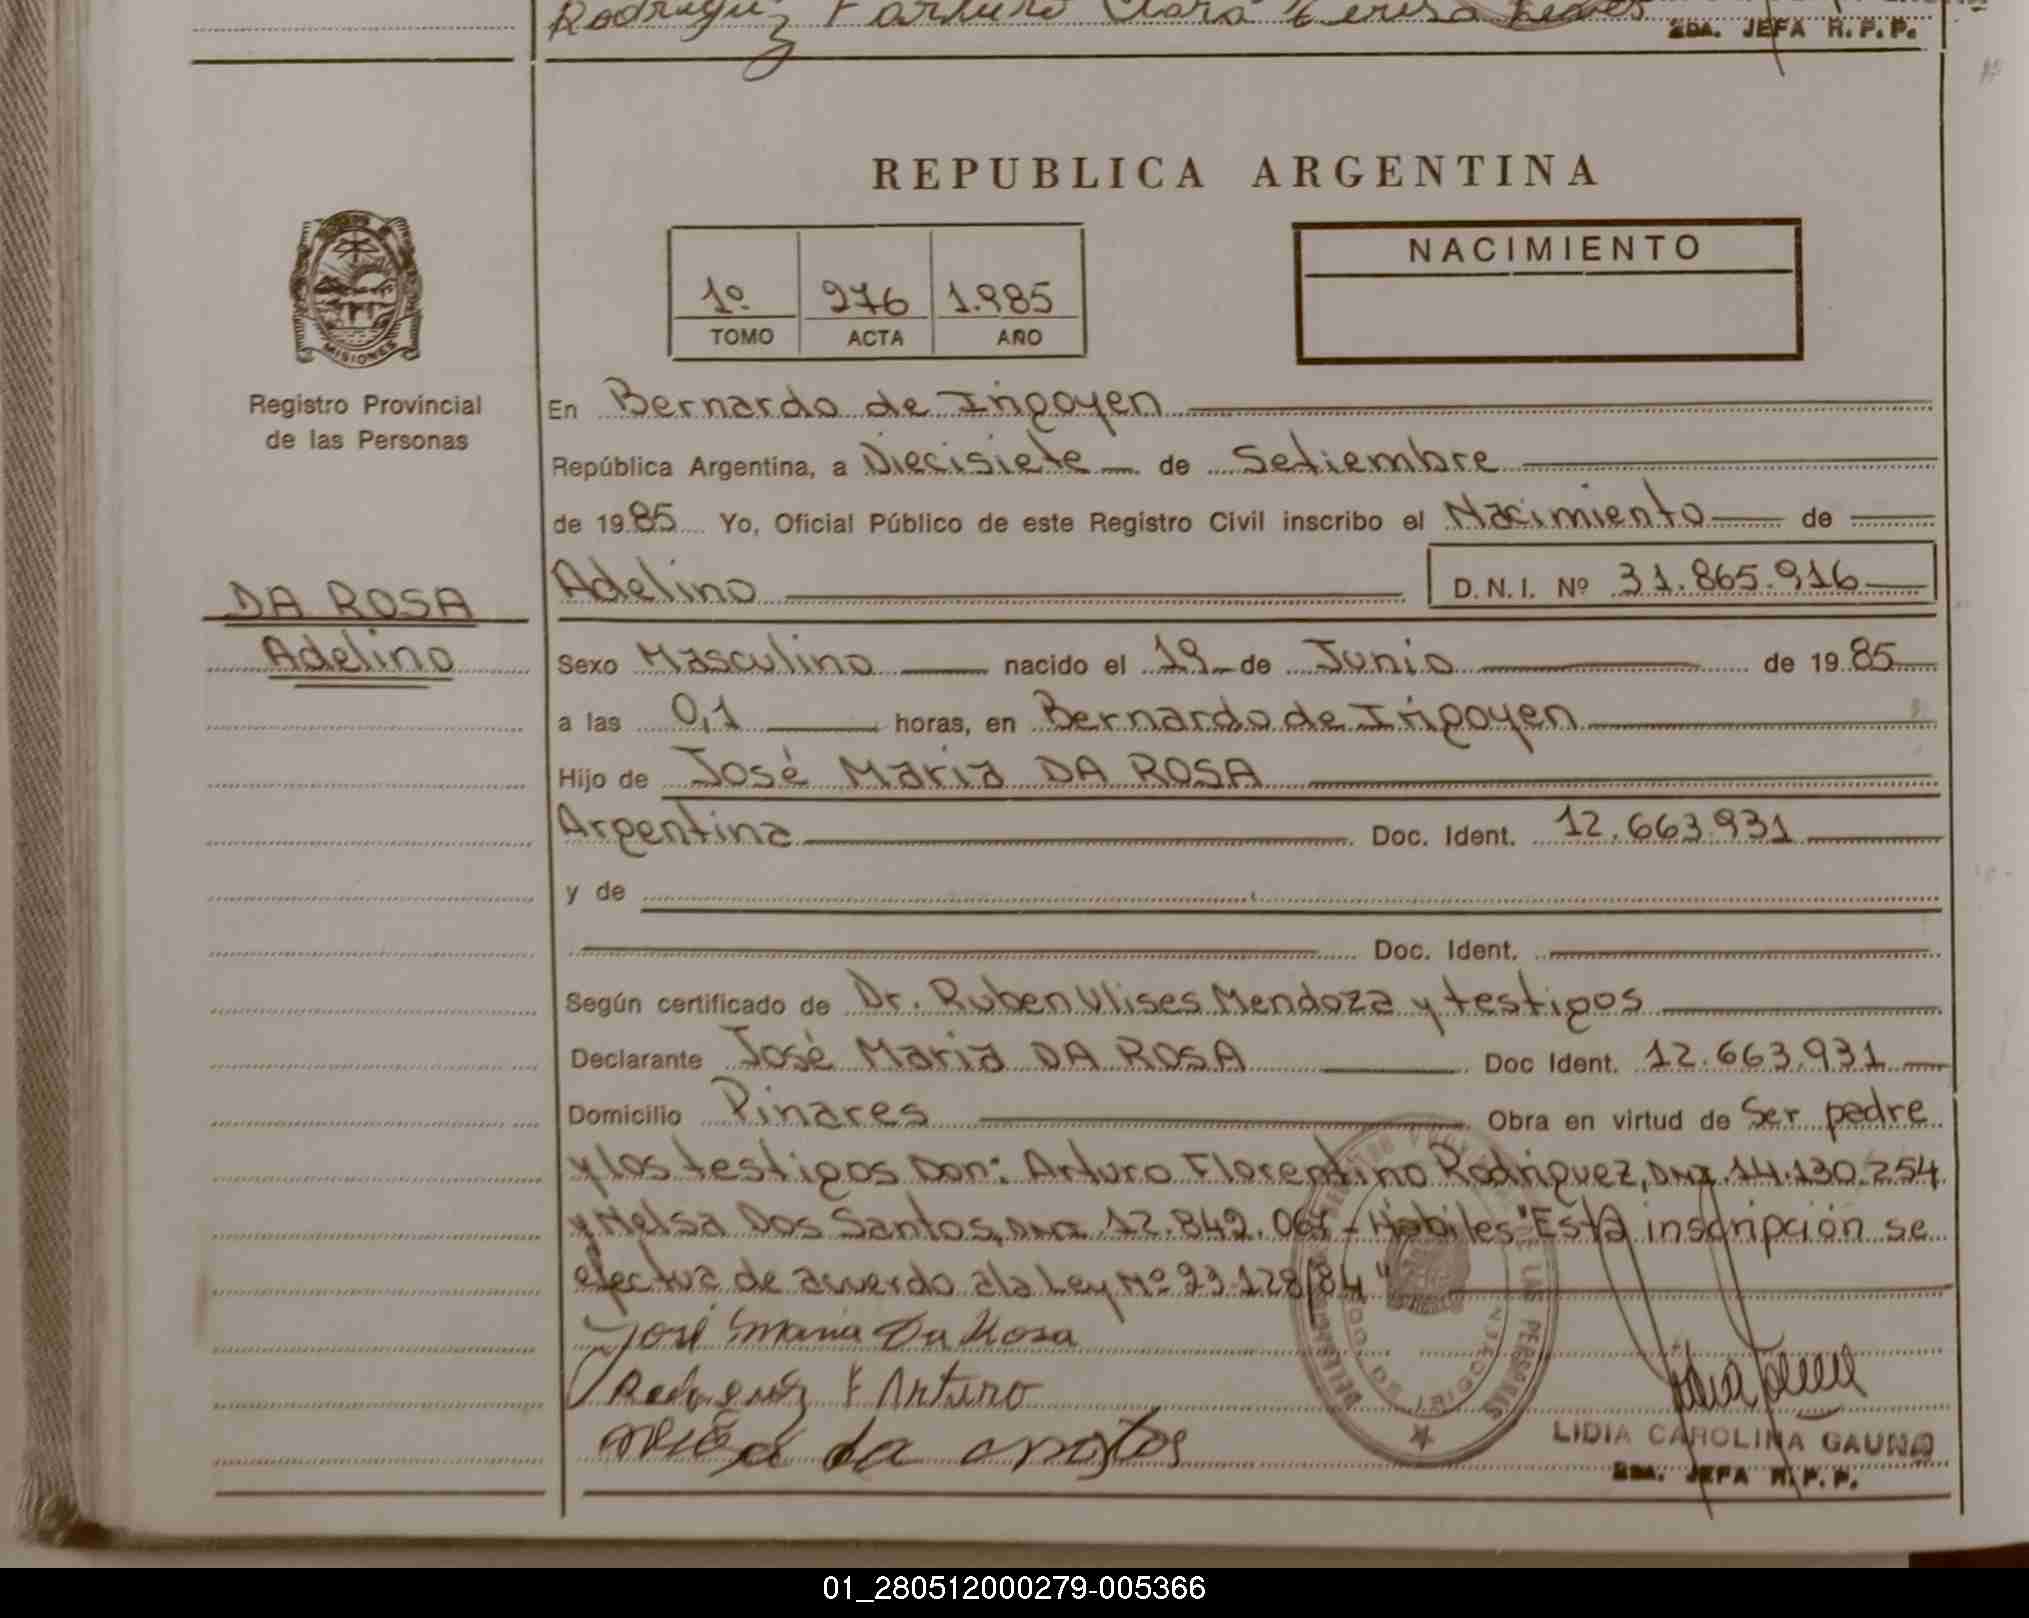 Rodriguez F arturo Clara Teresa
2DA. JEFA R. P. P.
REPUBLICA ARGENTINA
NACIMIENTO
1º 276 1.985
TOMO ACTA AÑO
MISIONES
Registro Provincial
de las Personas
En Bernardo de Irigoyen
República Argentina, a Diecisiete de Setiembre
de 1985 Yo, Oficial Público de este Registro Civil inscribo el Nacimiento de
DA ROSA
Adelino
Adelino D.N.I. Nº 31.865.916
Sexo Masculino nacido el 19 de Junio de 1985
a las 0,1 horas, en Bernardo de Irigoyen
Hijo de José Maria DA ROSA
Argentina Doc. Ident. 12.663.931
y de
Doc. Ident.
Según certificado de Dr. Ruben Ulises Mendoza y testigos
Declarante José Maria DA ROSA Doc Ident. 12.663.931
Domicilio Pinares Obra en virtud de Ser padre
y los testigos Don: Arturo Florentino Rodriguez, DNI. 14.130.254
y Melsa Dos Santos, DNI. 12.849. - Hábiles "Esta inscripción se
efectua de acuerdo a la Ley Nº 23.128/84"
José Maria Da Rosa
Rodriguez F Arturo
LIDIA CAROLINA GAUNA
2DA. JEFA R. P. P.
01_280512000279-005366